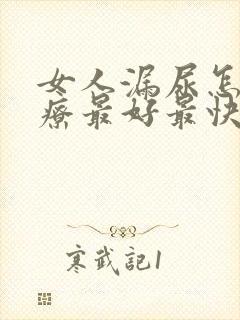 女人漏尿怎
疗最好最快
寒武记1